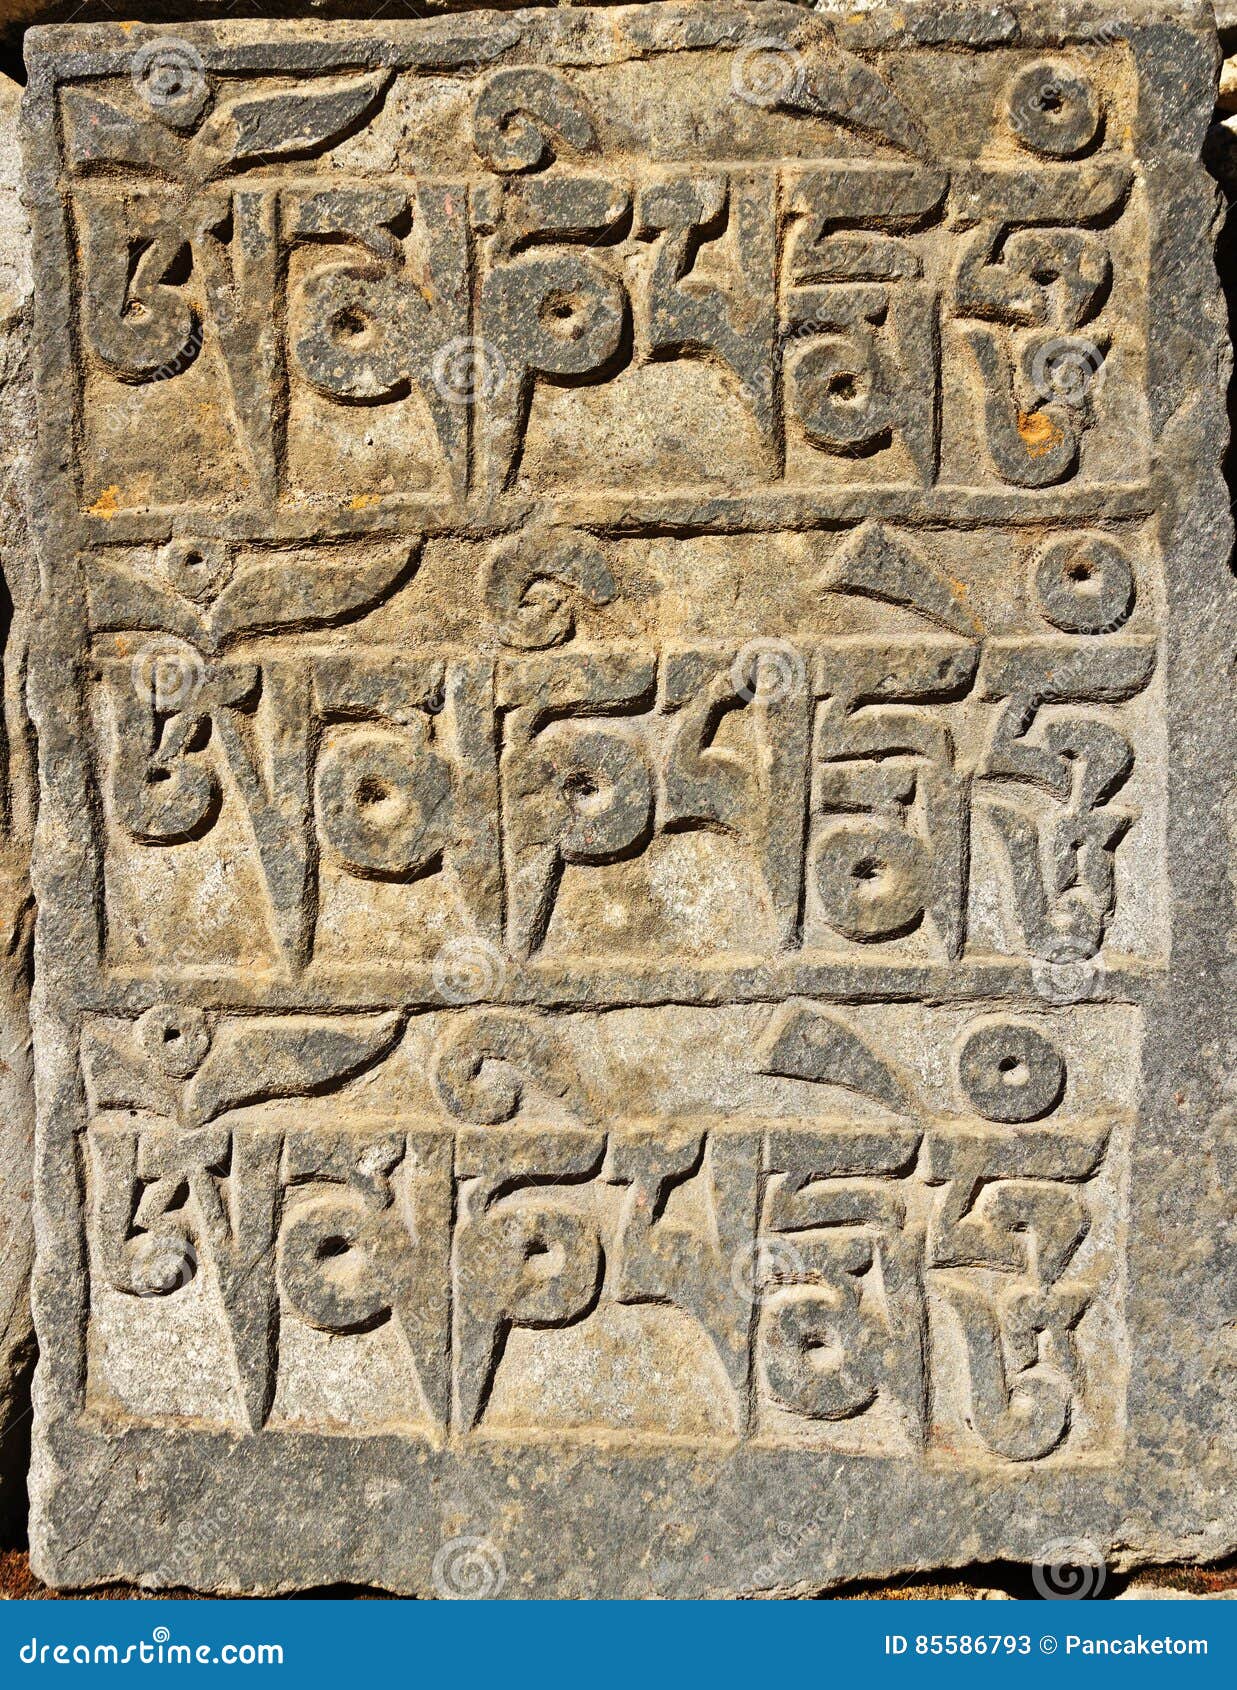 ཨོཾ་མ་ཎི་པ་དྨེ་ཧཱུཾ
ཨོཾ་མ་ཎི་པ་དྨེ་ཧཱུཾ
ཨོཾ་མ་ཎི་པ་དྨེ་ཧཱུཾ
dreamstime.com ID 85586793 © Pancaketom